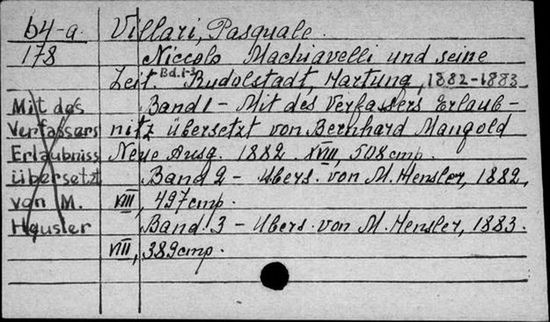 b4-a.
178
Villari, Pasquale.
Niccolo Machiavelli und seine
Zeit Bd.1-3 Rudolstadt, Hartung, 1882-1883
Band 1 - Mit des Verfassers Erlaub-
nitz übersetzt von Bernhard Mangold
Neue Ausg. 1882. XVIII, 508 cmp.
Band 2 - Ubers. von M. Hensler, 1882,
VIII, 497 cmp.
Band 3 - Ubers. von M. Hensler, 1883.
VIII, 389 cmp.
Mit des
Verfassers
Erlaubniss
übersetzt
von M.
Heusler